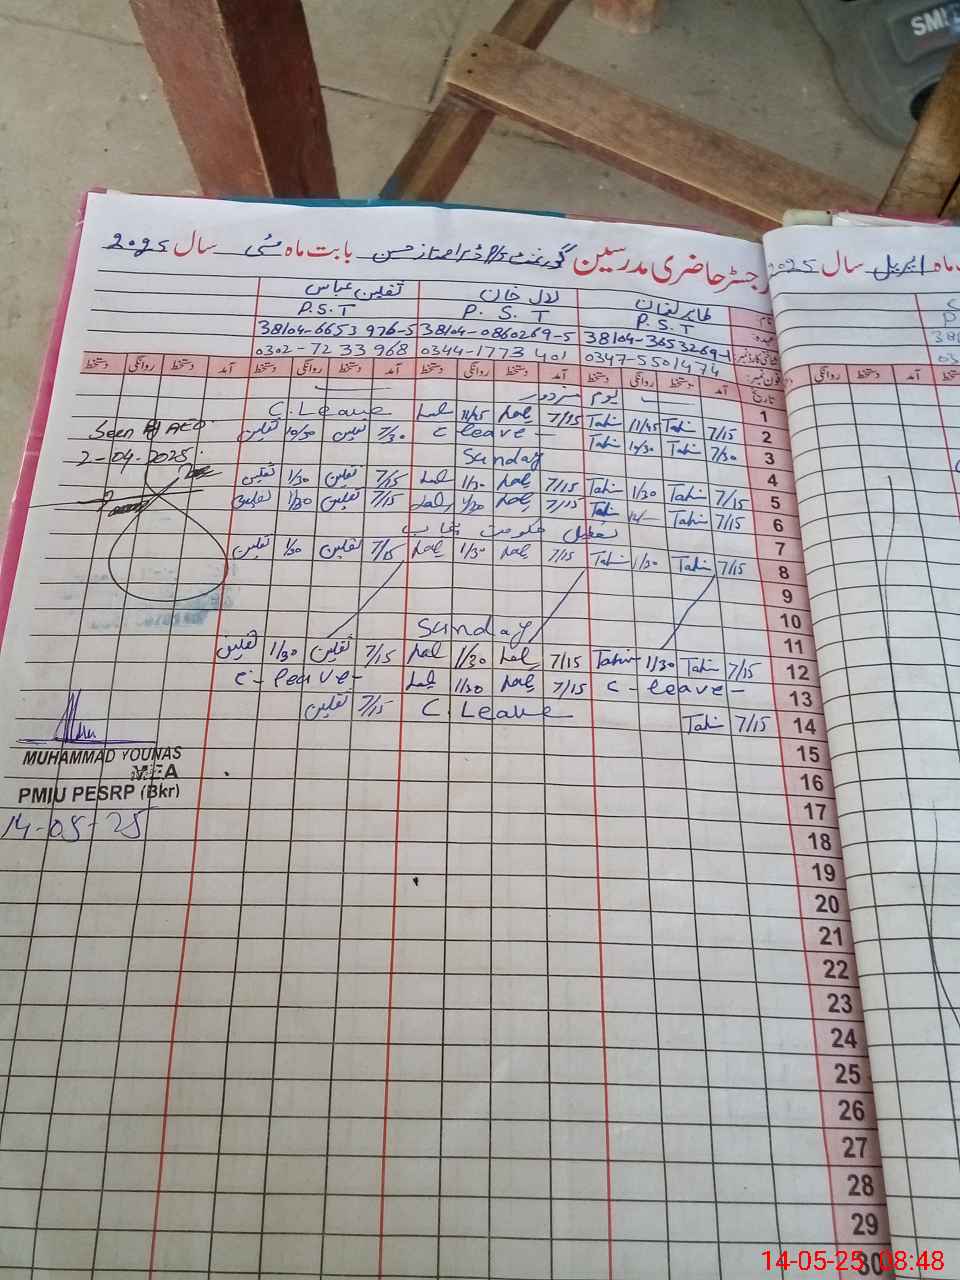 رجسٹر حاضری مدرسین گورنمنٹ P/S ڈیرا ممتاز حسن بابت ماہ مئی سال 2025
ماہ اپریل سال 2025
طاہر لقمان لال خان ثقلین عباس
P.S.T P.S.T P.S.T
38104-3653269-1 38104-0860269-5 38104-6653976-5
0347-5501474 0344-1773401 0302-7233968
تاریخ آمد دستخط روانگی دستخط آمد دستخط روانگی دستخط آمد دستخط روانگی دستخط آمد دستخط روانگی دستخط
1 یوم مزدور
2 7/15 Tahir 11/45 Tahir 7/15 Lal 11/45 Lal C.Leave
3 7/30 Tahir 10/30 Tahir C leave - 7/30 ثقلین 10/30 ثقلین
Seen AEO
2-04-2025
4 Sunday
5 7/15 Tahir 1/30 Tahir 7/15 Lal 1/30 Lal 7/15 ثقلین 1/30 ثقلین
6 7/15 Tahir Tahir 7/15 Lal 1/30 Lal 7/15 ثقلین 1/30 ثقلین
7 تعطیل حکومت پنجاب
8 7/15 Tahir 1/30 Tahir 7/15 Lal 1/30 Lal 7/15 ثقلین 1/30 ثقلین
9
10
11 Sunday
12 7/15 Tahir 1/30 Tahir 7/15 Lal 1/30 Lal 7/15 ثقلین 1/30 ثقلین
13 C-leave- 7/15 Lal 1/30 Lal C-leave-
14 7/15 Tahir C.Leave 7/15 ثقلین
15
16
17
18
19
20
21
22
23
24
25
26
27
28
29
30
MUHAMMAD YOUNAS
MEA
PMIU PESRP (Bkr)
14-05-25
SMI
14-05-25 08:48